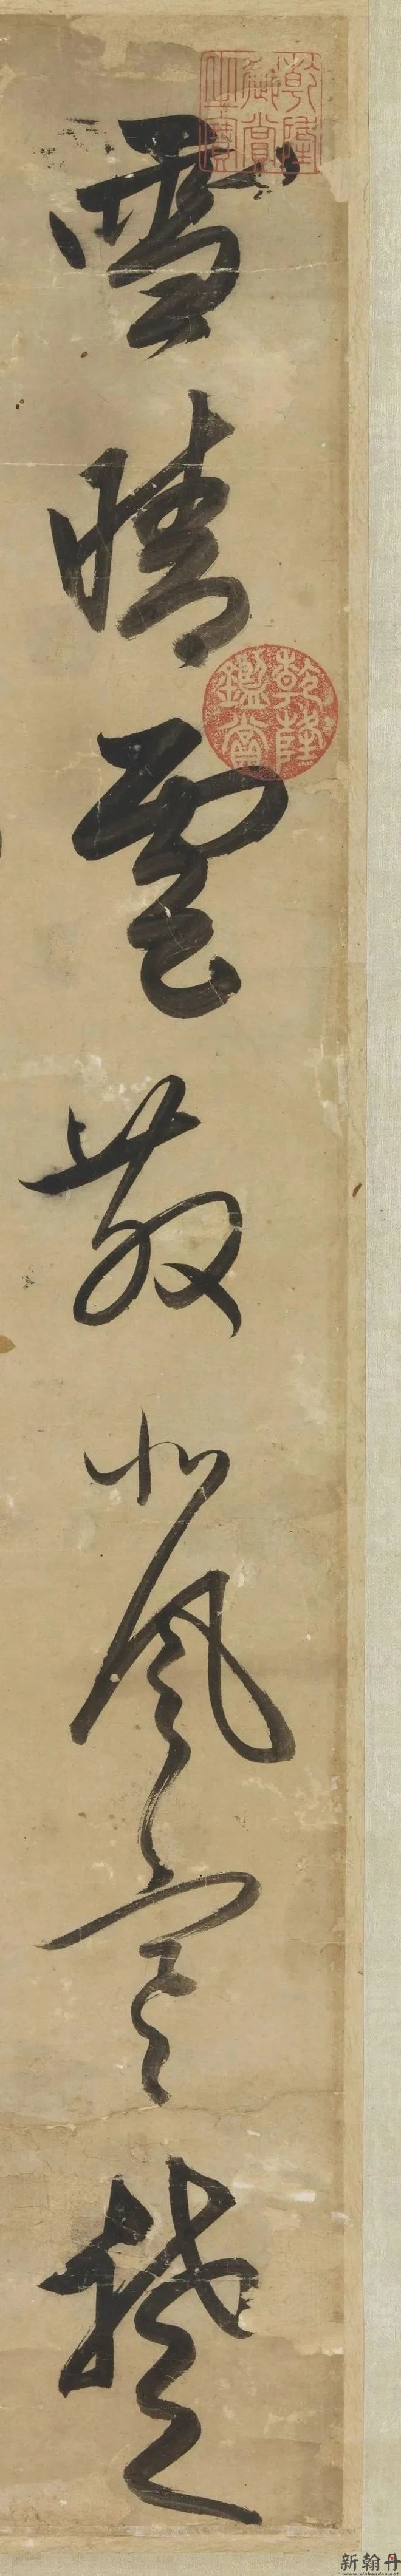 雪晴雲散北風寒楚
乾隆御賞之寶
乾隆鑑賞
新翰丹